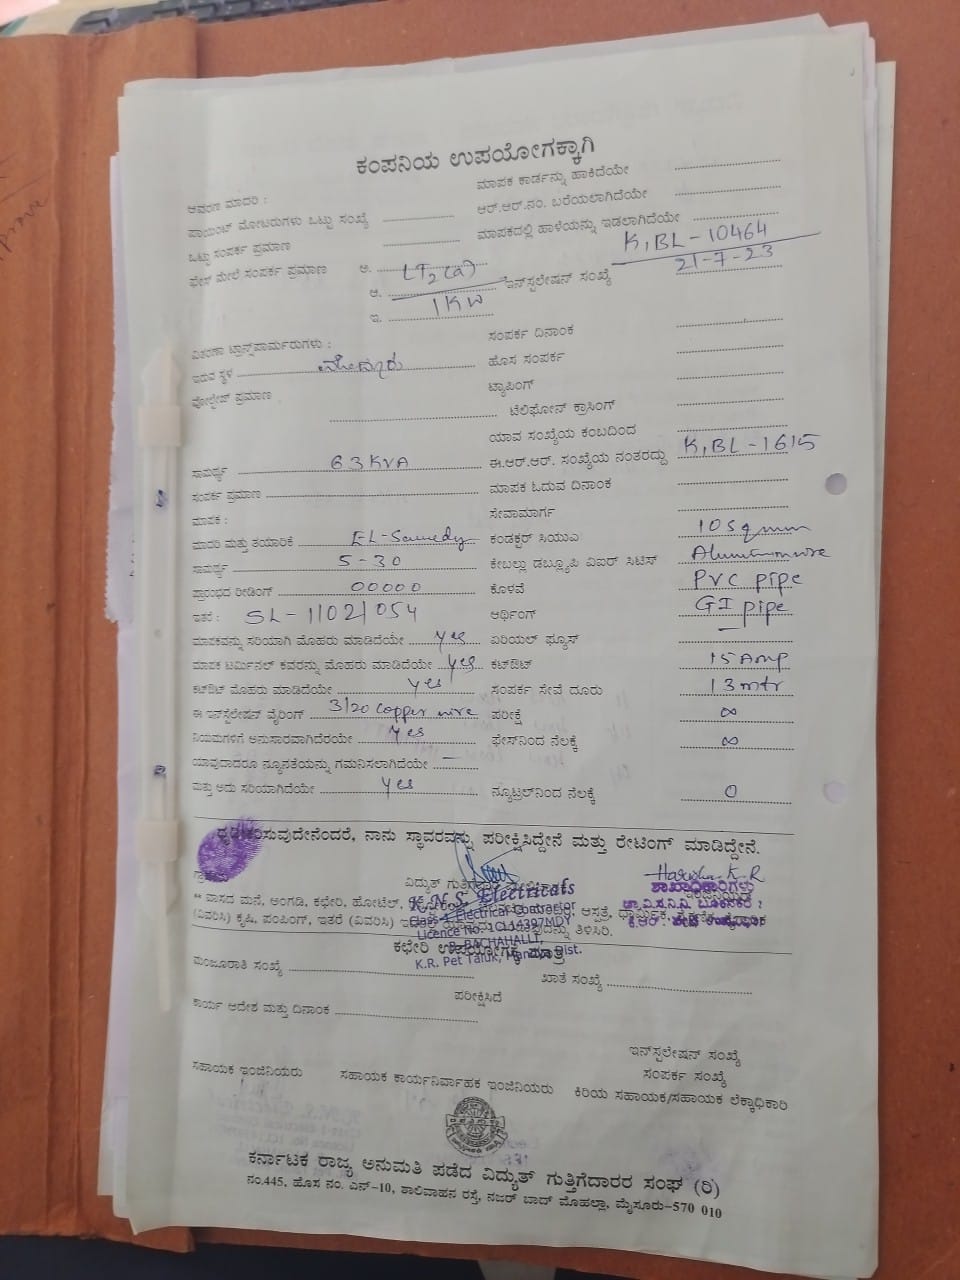 ಕಂಪನಿಯ ಉಪಯೋಗಕ್ಕಾಗಿ
ಆವರಣ ಮಾದರಿ : ಮಾಪಕ ಕಾರ್ಡನ್ನು ಹಾಕಿದೆಯೇ
ಪಾಯಿಂಟ್ ಮೋಟರುಗಳು ಒಟ್ಟು ಸಂಖ್ಯೆ ಆರ್.ಆರ್.ನಂ. ಬರೆಯಲಾಗಿದೆಯೇ
ಒಟ್ಟು ಸಂಪರ್ಕ ಪ್ರಮಾಣ ಮಾಪಕದಲ್ಲಿ ಹಾಳೆಯನ್ನು ಇಡಲಾಗಿದೆಯೇ
ಫೇಸ್ ಮೇಲೆ ಸಂಪರ್ಕ ಪ್ರಮಾಣ ಅ. LT2(a) K,BL-10464
ಆ. 1KW ಇನ್‌ಸ್ಟಲೇಷನ್ ಸಂಖ್ಯೆ 21-7-23
ಇ.
ವಿತರಣಾ ಟ್ರಾನ್ಸ್‌ಪಾರ್ಮರುಗಳು : ಸಂಪರ್ಕ ದಿನಾಂಕ
ಇರುವ ಸ್ಥಳ ಹೊಸ ಸಂಪರ್ಕ
ವೋಲ್ಟೇಜ್ ಪ್ರಮಾಣ ಟ್ಯಾಪಿಂಗ್
ಟೆಲಿಫೋನ್ ಕ್ರಾಸಿಂಗ್
ಯಾವ ಸಂಖ್ಯೆಯ ಕಂಬದಿಂದ
ಸಾಮರ್ಥ್ಯ 63KVA ಈ.ಆರ್.ಆರ್. ಸಂಖ್ಯೆಯ ನಂತರದ್ದು K,BL-1615
ಸಂಪರ್ಕ ಪ್ರಮಾಣ ಮಾಪಕ ಓದುವ ದಿನಾಂಕ
ಮಾಪಕ : ಸೇವಾಮಾರ್ಗ
ಮಾದರಿ ಮತ್ತು ತಯಾರಿಕೆ ಕಂಡಕ್ಟರ್ ಸಿಯುಎ 10 Sqmm
ಸಾಮರ್ಥ್ಯ 5-30 ಕೇಬಲ್ಲು ಡಬ್ಲ್ಯೂಪಿ ವಿಐರ್ ಸಿಟಿಸ್
ಪ್ರಾರಂಭದ ರೀಡಿಂಗ್ 00000 ಕೊಳವೆ PVC pipe
ಇತರೆ : SL-11021054 ಅರ್ಥಿಂಗ್ GI pipe
ಮಾಪಕವನ್ನು ಸರಿಯಾಗಿ ಮೊಹರು ಮಾಡಿದೆಯೇ yes ಏರಿಯಲ್ ಫ್ಯೂಸ್
ಮಾಪಕ ಟರ್ಮಿನಲ್ ಕವರನ್ನು ಮೊಹರು ಮಾಡಿದೆಯೇ yes ಕಟ್‌ಔಟ್ 15 Amp
ಕಟ್‌ಔಟ್ ಮೊಹರು ಮಾಡಿದೆಯೇ yes ಸಂಪರ್ಕ ಸೇವೆ ದೂರು 13 mtr
ಈ ಇನ್‌ಸ್ಟಲೇಷನ್ ವೈರಿಂಗ್ 3/20 Copper wire ಪರೀಕ್ಷೆ ∞
ನಿಯಮಗಳಿಗೆ ಅನುಸಾರವಾಗಿದೆರೆಯೇ yes ಫೇಸ್‌ನಿಂದ ನೆಲಕ್ಕೆ ∞
ಯಾವುದಾದರೂ ನ್ಯೂನತೆಯನ್ನು ಗಮನಿಸಲಾಗಿದೆಯೇ —
ಮತ್ತು ಅದು ಸರಿಯಾಗಿದೆಯೇ yes ನ್ಯೂಟ್ರಲ್‌ನಿಂದ ನೆಲಕ್ಕೆ 0
ಧೃಡೀಕರಿಸುವುದೇನೆಂದರೆ, ನಾನು ಸ್ಥಾವರವನ್ನು ಪರೀಕ್ಷಿಸಿದ್ದೇನೆ ಮತ್ತು ರೇಟಿಂಗ್ ಮಾಡಿದ್ದೇನೆ.
Harsha K.R
ವಿದ್ಯುತ್ ಶಾಖಾಧಿಕಾರಿಗಳು
K.N.S. Electricals
** ವಾಸದ ಮನೆ, ಅಂಗಡಿ, ಕಛೇರಿ, ಹೋಟೆಲ್, ಆಸ್ಪತ್ರೆ,
Class-1 Electrical Contractor
(ವಿವರಿಸಿ) ಕೃಷಿ, ಪಂಪಿಂಗ್, ಇತರೆ (ವಿವರಿಸಿ) ತಿಳಿಸಿರಿ.
Licence No. 1CL14397MDY
BACHAHALLI,
ಕಛೇರಿ ಉಪಯೋಗಕ್ಕೆ ಮಾತ್ರ
K.R. Pet Taluk, Mandya Dist.
ಮಂಜೂರಾತಿ ಸಂಖ್ಯೆ ಖಾತೆ ಸಂಖ್ಯೆ
ಪರೀಕ್ಷಿಸಿದೆ
ಕಾರ್ಯ ಆದೇಶ ಮತ್ತು ದಿನಾಂಕ
ಇನ್‌ಸ್ಟಲೇಷನ್ ಸಂಖ್ಯೆ
ಸಂಪರ್ಕ ಸಂಖ್ಯೆ
ಸಹಾಯಕ ಇಂಜಿನಿಯರು ಸಹಾಯಕ ಕಾರ್ಯನಿರ್ವಾಹಕ ಇಂಜಿನಿಯರು ಕಿರಿಯ ಸಹಾಯಕ/ಸಹಾಯಕ ಲೆಕ್ಕಾಧಿಕಾರಿ
ಕರ್ನಾಟಕ ರಾಜ್ಯ ಅನುಮತಿ ಪಡೆದ ವಿದ್ಯುತ್ ಗುತ್ತಿಗೆದಾರರ ಸಂಘ (ರಿ)
ನಂ.445, ಹೊಸ ನಂ. ಎನ್-10, ಶಾಲಿವಾಹನ ರಸ್ತೆ, ನಜರ್ ಬಾದ್ ಮೊಹಲ್ಲಾ, ಮೈಸೂರು-570 010